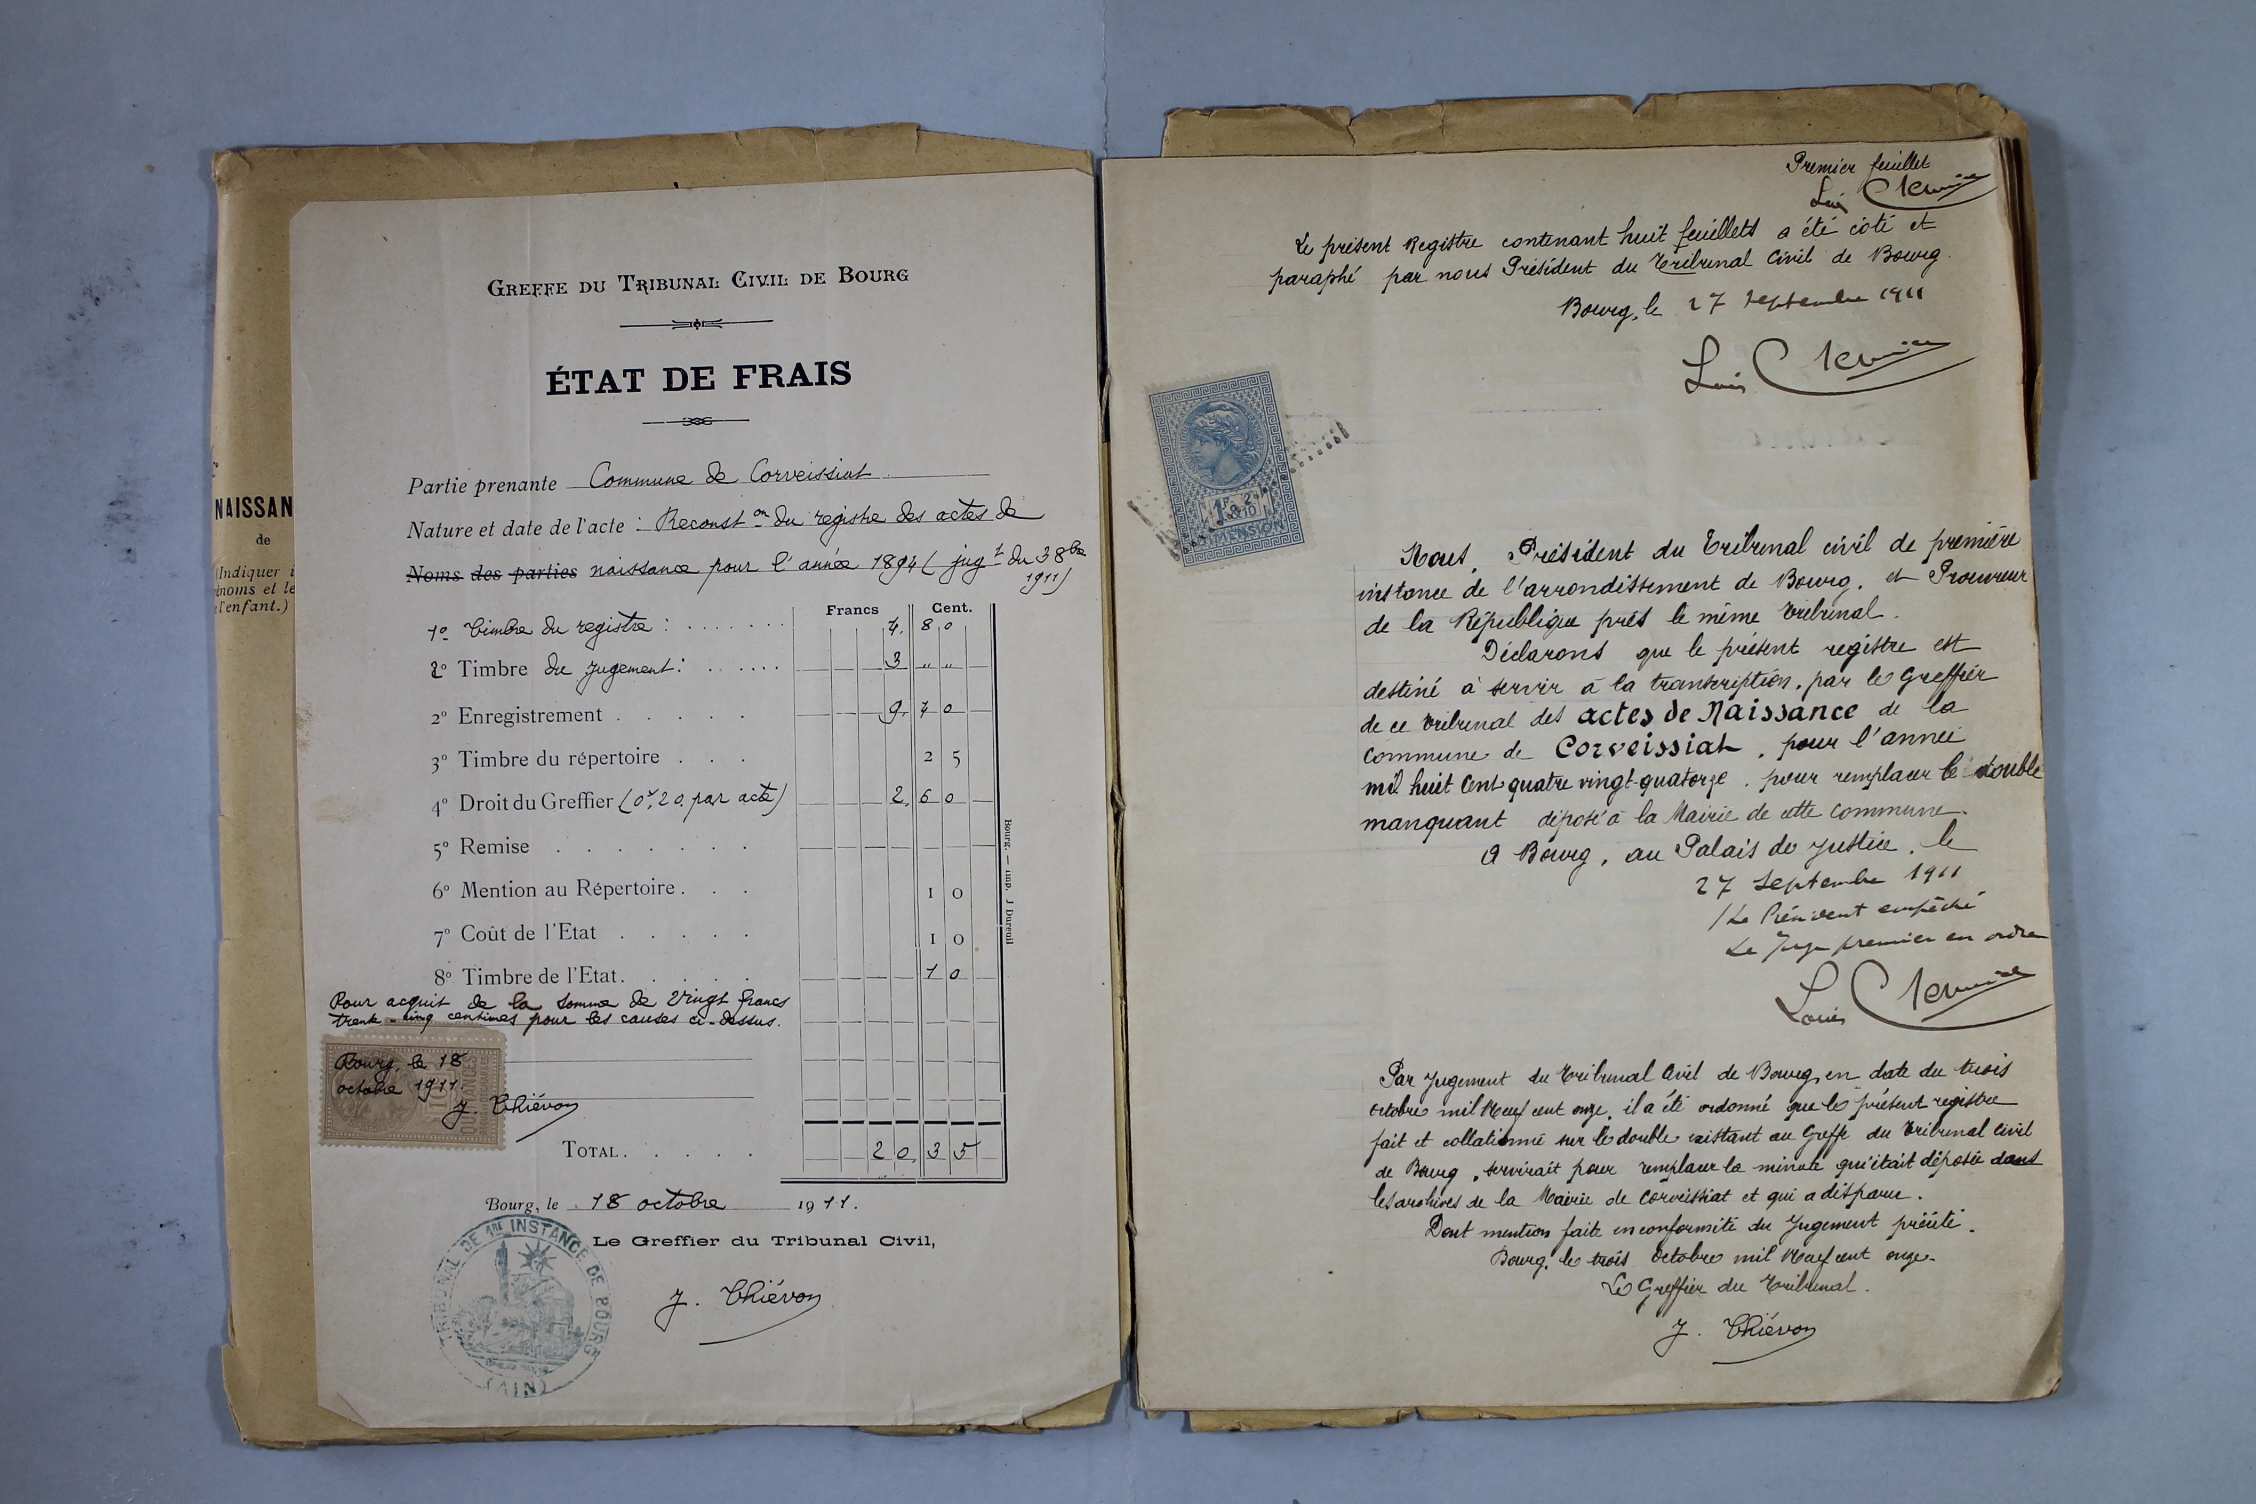 NAISSAN
de
(Indiquer i
énoms et le
l'enfant.)
GREFFE DU TRIBUNAL CIVIL DE BOURG
ÉTAT DE FRAIS
Partie prenante Commune de Corveissiat
Nature et date de l'acte : Reconston du registre des actes de
Noms des parties naissance pour l'année 1894 (jugt du 3 8bre
1911)
Francs Cent.
1º Timbre du registre : 4. 80
2º Timbre du jugement : 3 " "
2º Enregistrement 9. 40
3º Timbre du répertoire 25
4º Droit du Greffier (0f,20 par acte) 2. 60
5º Remise
6º Mention au Répertoire 10
7º Coût de l'Etat 10
8º Timbre de l'Etat 10
Pour acquit de la somme de vingt francs
trente-cinq centimes pour les causes ci-dessus.
Bourg, le 18
octobre 1911.
J. Thiévon
TOTAL 20. 35
Bourg, le 18 octobre 1911.
Le Greffier du Tribunal Civil,
J. Thiévon
TRIBUNAL DE 1RE INSTANCE DE BOURG
(AIN)
Bourg. — imp. J Dureuil
Premier feuillet
Le présent Registre contenant huit feuillets a été coté et
paraphé par nous Président du Tribunal Civil de Bourg.
Bourg, le 27 septembre 1911
DIMENSION
Nous, Président du Tribunal civil de première
instance de l'arrondissement de Bourg, et Procureur
de la République près le même Tribunal.
Déclarons que le présent registre est
destiné à servir à la transcription, par le Greffier
de ce Tribunal des actes de Naissance de la
commune de Corveissiat, pour l'année
mil huit cent quatre vingt-quatorze, pour remplacer le double
manquant déposé à la Mairie de cette commune.
A Bourg, au Palais de Justice, le
27 septembre 1911
/ Le Président empêché
Le Juge premier en ordre
Par Jugement du Tribunal Civil de Bourg, en date du trois
octobre mil Neuf cent onze, il a été ordonné que le présent registre
fait et collationné sur le double existant au Greffe du Tribunal Civil
de Bourg, servirait pour remplacer la minute qui était déposée dans
les archives de la Mairie de Corveissiat et qui a disparu.
Dont mention faite en conformité du Jugement précité.
Bourg, le trois Octobre mil Neuf cent onze.
Le Greffier du Tribunal.
J. Thiévon